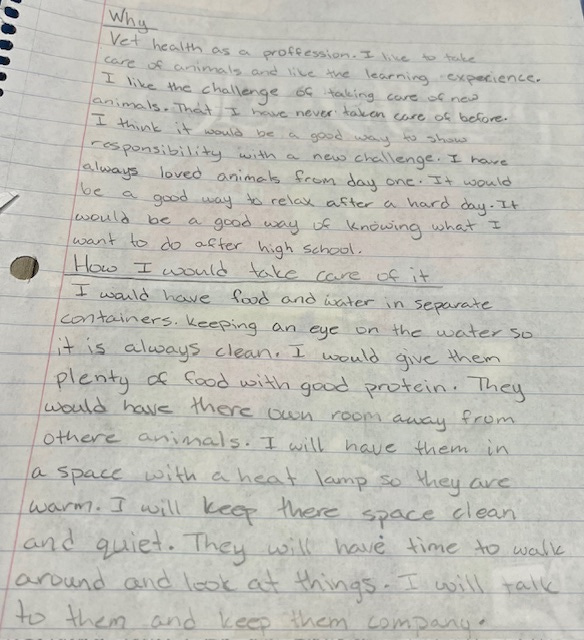 Why
Vet health as a proffession. I like to take
care of animals and like the learning experience.
I like the challenge of taking care of new
animals. That I have never taken care of before.
I think it would be a good way to show
responsibility with a new challenge. I have
always loved animals from day one. It would
be a good way to relax after a hard day. It
would be a good way of knowing what I
want to do after high school.
How I would take care of it
I would have food and water in separate
containers. keeping an eye on the water so
it is always clean. I would give them
plenty of food with good protein. They
would have there own room away from
othere animals. I will have them in
a space with a heat lamp so they are
warm. I will keep there space clean
and quiet. They will have time to walk
around and look at things. I will talk
to them and keep them company.